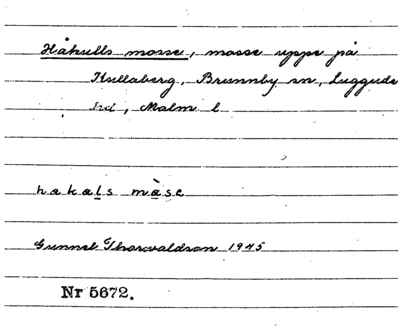 Håkulls mosse, mosse uppe på
Kullaberg, Brunnby sn, Luggude
hd, Malm l
hakals màse
Gunnel Thorvaldson 1945
Nr 5672.